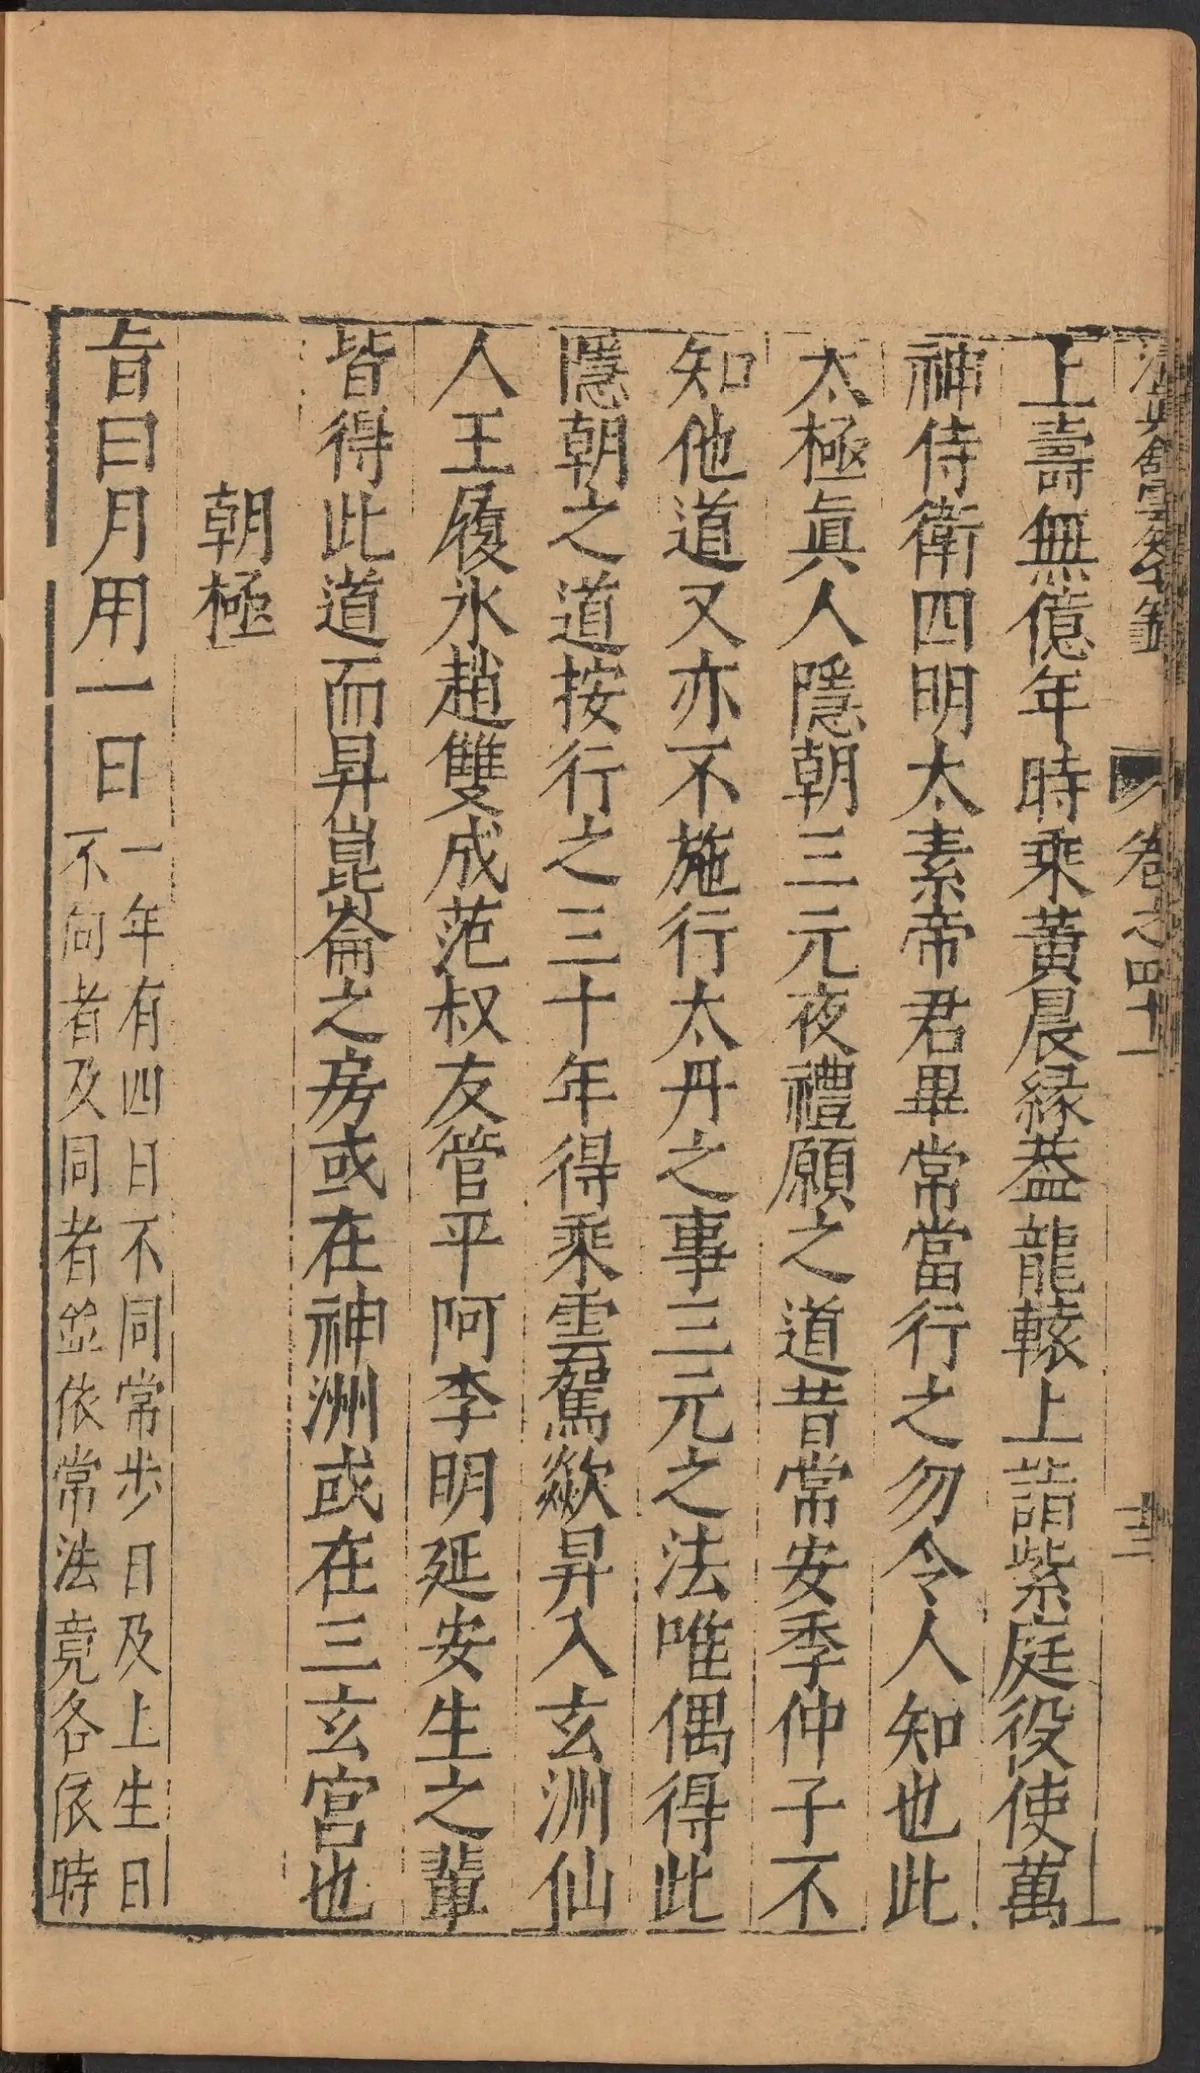 清眞館雲笈七籤
卷之四十一
十三
上壽無億年時乘黃晨緑葢龍轅上詣紫庭役使萬
神侍衛四明太素帝君畢常當行之勿令人知也此
太極眞人隱朝三元夜禮願之道昔常安季仲子不
知他道又亦不施行太丹之事三元之法唯偶得此
隱朝之道按行之三十年得乘雲駕歘昇入玄洲仙
人王履氷趙雙成范叔友管平阿李明延安生之輩
皆得此道而昇崑崙之房或在神洲或在三玄宮也
朝極
旨曰月用一日
一年有四日不同常步日及上生日
不向者及同者並依常法竟各依時